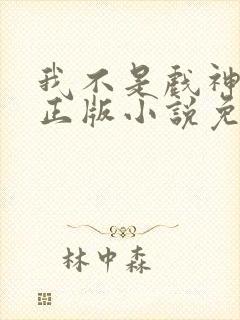 我不是戏神
正版小说免
林中森